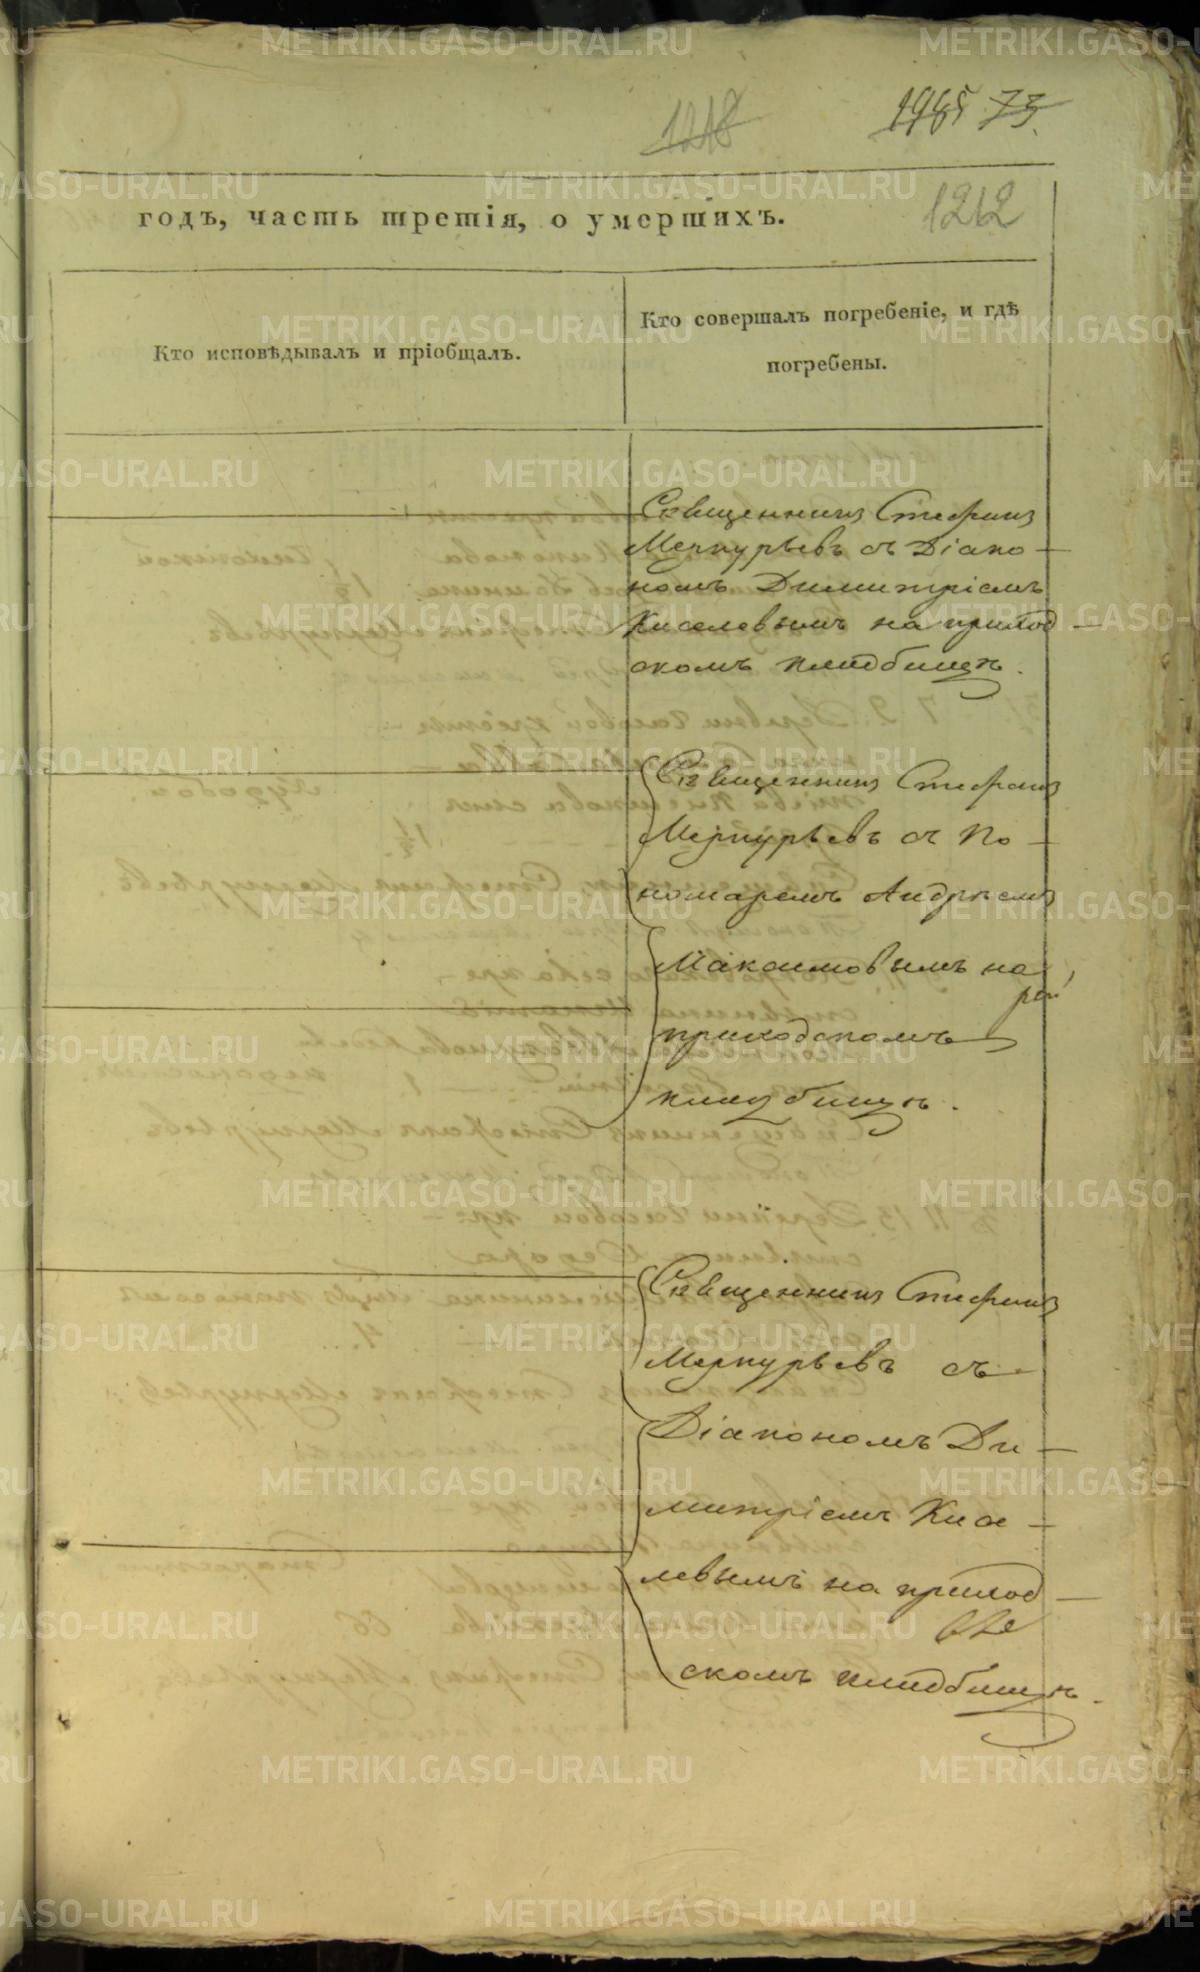 1218
1985 73.
1212
годъ, часть третія, о умершихъ.
Кто исповѣдывалъ и пріобщалъ.
Кто совершалъ погребеніе, и гдѣ
погребены.
Священникъ Стефанъ
Меркурьевъ съ Діако-
номъ Димитріемъ
Киселевымъ на приход-
скомъ кладбищѣ.
Священникъ Стефанъ
Меркурьевъ съ По-
номаремъ Андреемъ
Максимовымъ на
приходскомъ
кладбищѣ.
Священникъ Стефанъ
Меркурьевъ съ
Діакономъ Ди-
митріемъ Кисе-
левымъ на приход-
скомъ кладбищѣ.
METRIKI.GASO-URAL.RU